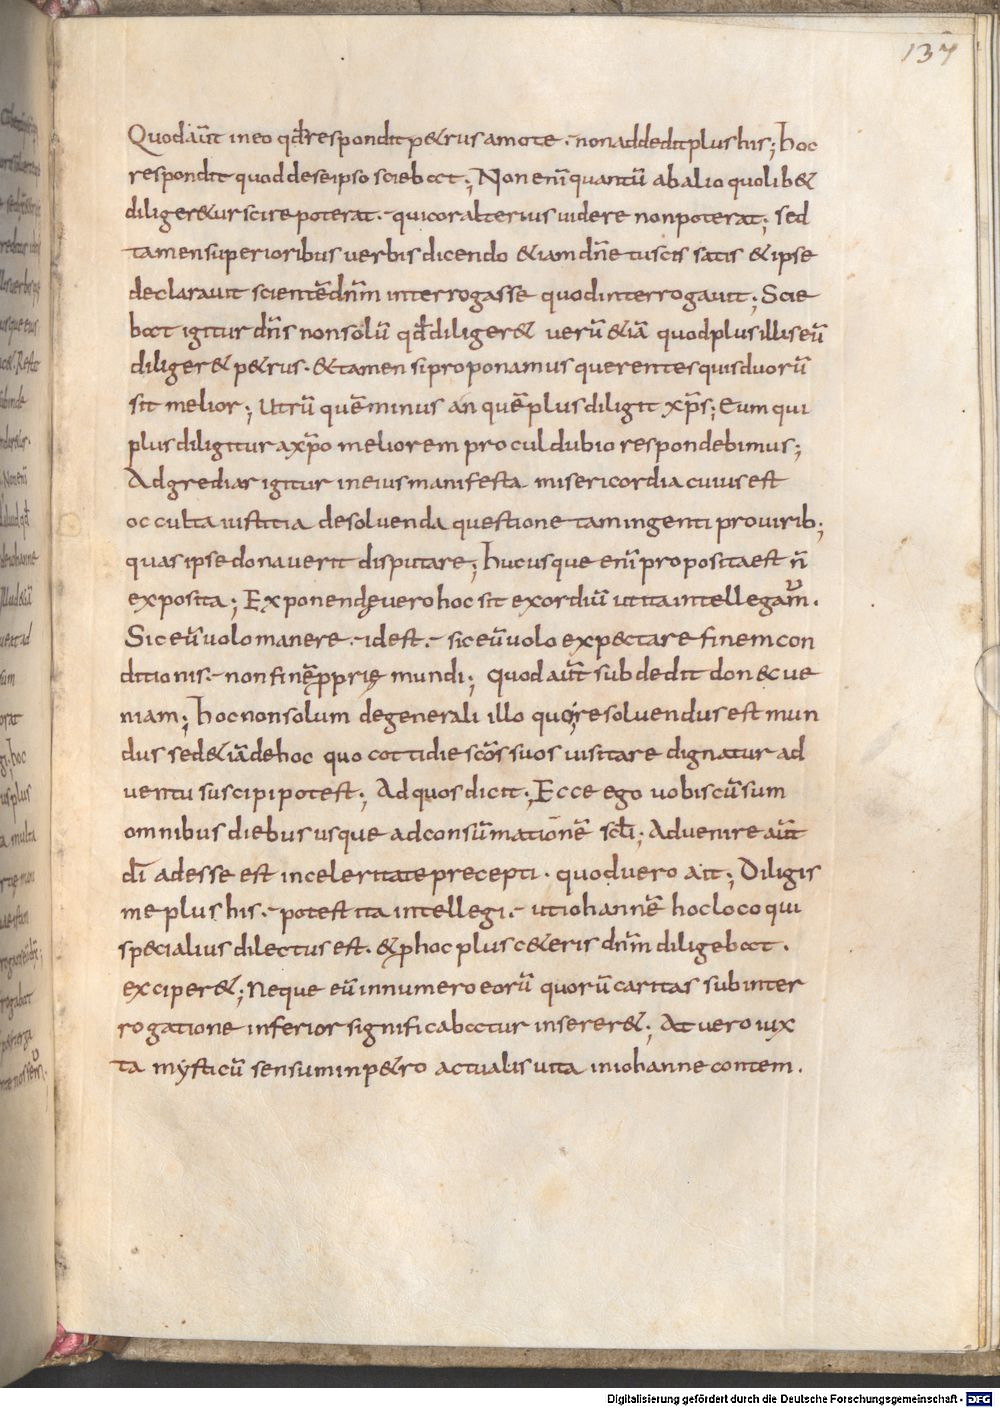 137
Quod aut̄ in eo qđ respondit p&rus amo te · non addedit plus his; hoc
respondit quod de se ipso sciebat; Non enī quantū ab alio quolib&
diliger&ur scire poterat · qui cor alterius uidere non poterat; sed
tamen superioribus uerbis dicendo &iam dn̄e tu scis satis & ipse
declarauit scientē dn̄m interrogasse quod interrogauit; Scie
bat igitur dn̄s non solū qđ diliger& uerū &iā quod plus illis eū
diliger& p&rus · & tamen si proponamus querentes quis duorū
sit melior; utrū quē minus an quē plus diligit xp̄s; Eum qui
plus diligitur a xp̄o meliorem procul dubio respondebimus;
Adgrediar igitur in eius manifesta misericordia cuius est
occulta iustitia de soluenda questione tam ingenti pro uirib;
quas ipse donauerit disputare; hucusque enī proposita est n̄
exposita; Exponendę uero hoc sit exordiū ut ita intellegam̄ ·
Sic eū uolo manere · id est · sic eū uolo expectare finem con
ditionis · non finē ꝓprię mundi; quod aut̄ subdedit donec ue
niam; hoc non solum de generali illo quo resoluendus est mun
dus sed &iā de hoc quo cottidie sc̄os suos uisitare dignatur ad
uentu suscipi potest; Ad quos dicit; Ecce ego uobiscū sum
omnibus diebus usque ad consūmationē sc̄li; Aduenire aut̄
dī adesse est in celeritate precepti · quod uero ait; Diligis
me plus his · potest ita intellegi · ut iohannē hoc loco qui
specialius dilectus est · & ꝑ hoc plus c&eris dn̄m diligebat ·
exciper&; Neque enī in numero eorū quorū caritas sub inter
rogatione inferior significabatur inserer&; At uero iux
ta mẏsticū sensum in p&ro actualis uita in iohanne contem ·
Digitalisierung gefördert durch die Deutsche Forschungsgemeinschaft - DFG